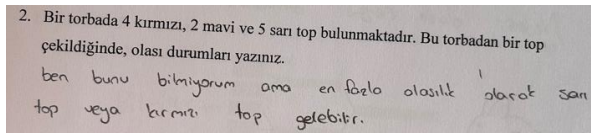 2. Bir torbada 4 kırmızı, 2 mavi ve 5 sarı top bulunmaktadır. Bu torbadan bir top
çekildiğinde, olası durumları yazınız.
ben bunu bilmiyorum ama en fazla olasılık olarak sarı
top veya kırmızı top gelebilir.